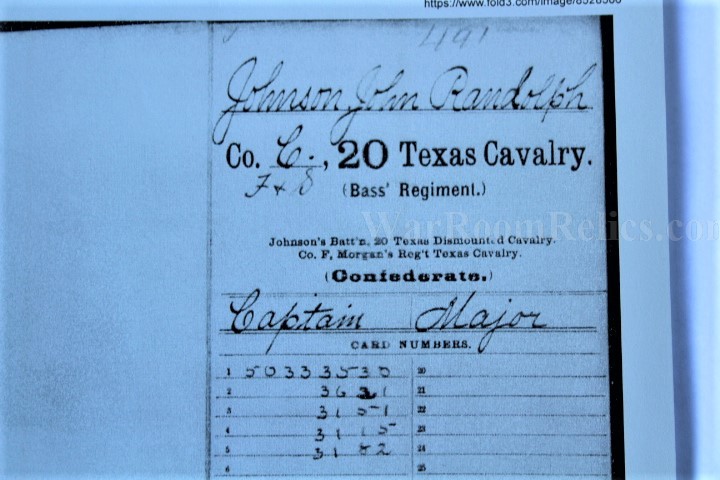 https://www.fold3.com/image/8528506
491
Johnson, John Randolph
Co. C., 20 Texas Cavalry.
F & S
(Bass' Regiment.)
WarRoomRelics.com
Johnson's Batt'n, 20 Texas Dismounted Cavalry.
Co. F, Morgan's Reg't Texas Cavalry.
(Confederate.)
Captain Major
CARD NUMBERS.
1 50333530 20
2 3631 21
3 3151 22
4 3115 23
5 3182 24
6 25